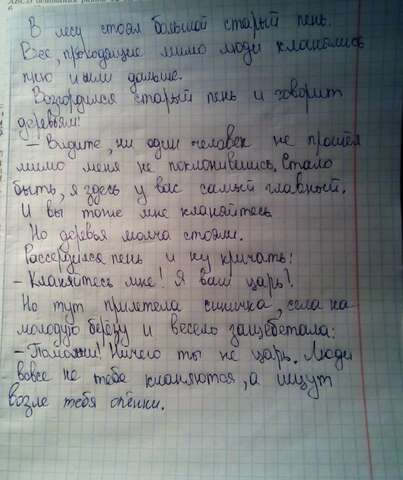 В лесу стоял большой старый пень.
Все проходящие мимо люди кланялись
пню и шли дальше.
Возгордился старый пень и говорит
деревьям:
– Видите, ни один человек не прошёл
мимо меня не поклонившись. Стало
быть, я здесь у вас самый главный.
И вы тоже мне кланяйтесь
Но деревья молча стояли.
Рассердился пень и ну кричать:
– Кланяйтесь мне! Я ваш царь!
Но тут прилетела синичка, села на
молодую берёзу и весело защебетала:
– Ничего ты не царь. Люди
вовсе не тебе кланяются, а ищут
возле тебя опёнки.